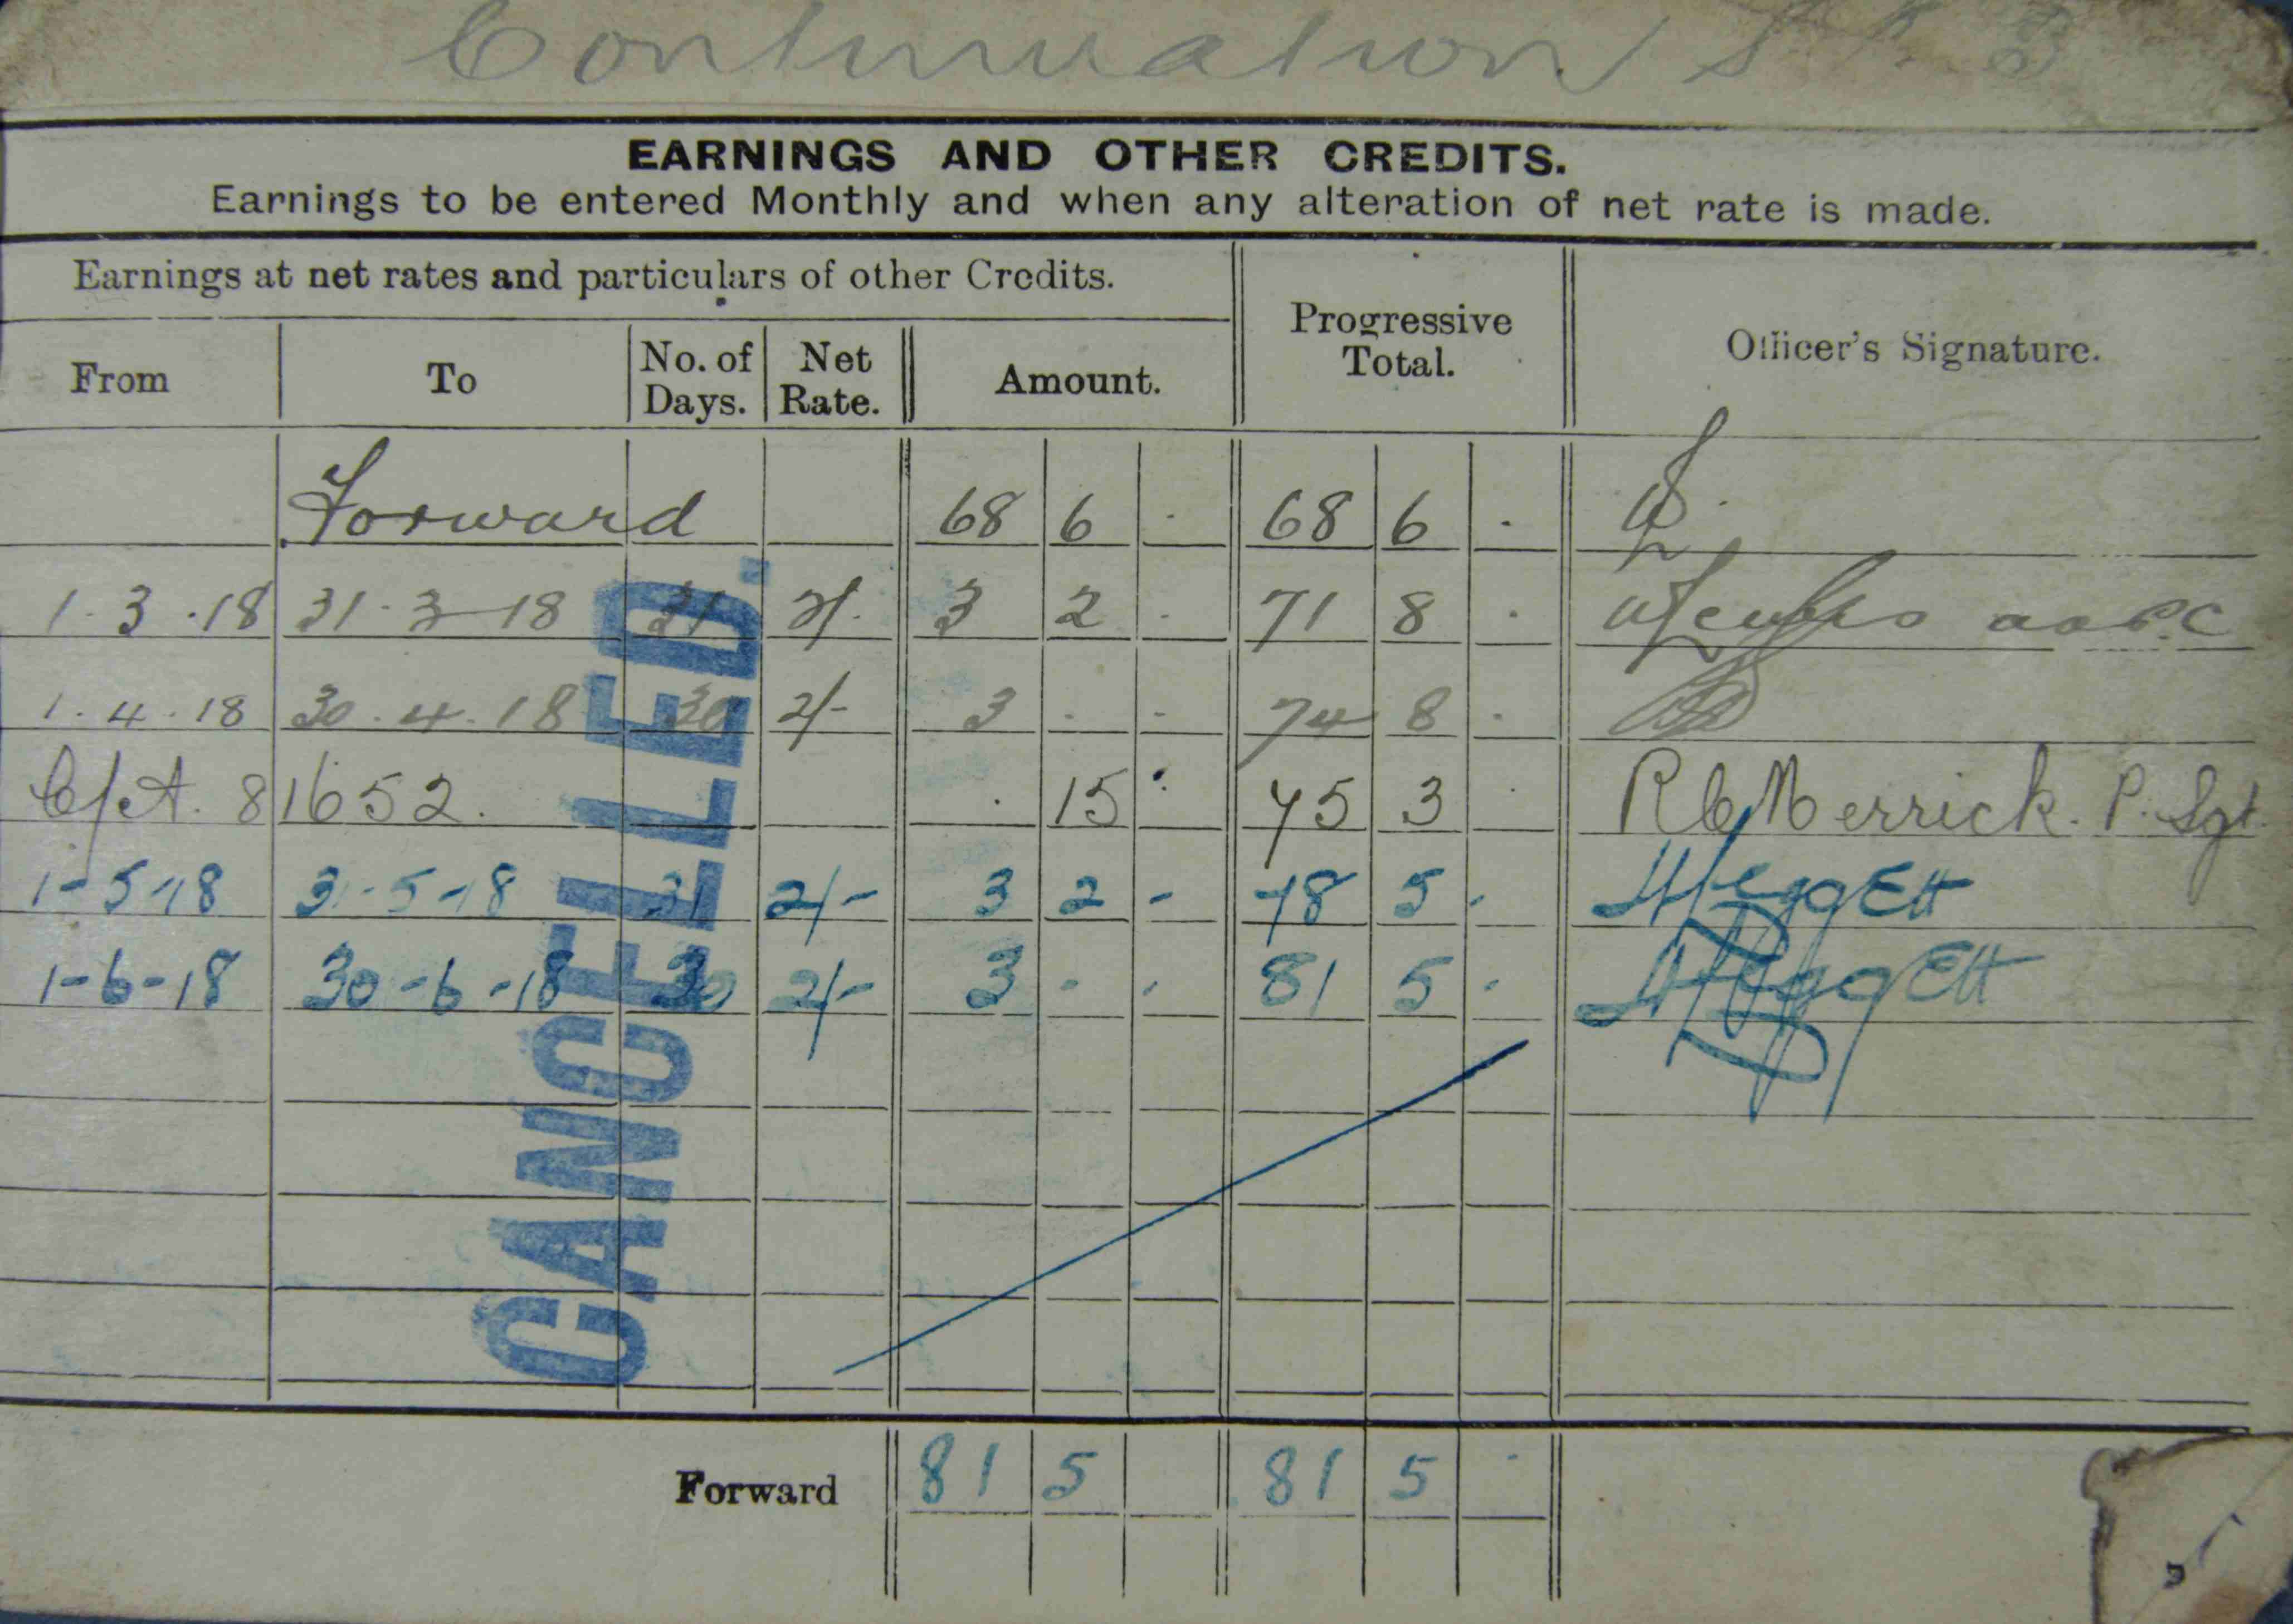 Continuation
EARNINGS AND OTHER CREDITS.
Earnings to be entered Monthly and when any alteration of net rate is made.
Earnings at net rates and particulars of other Credits.
From To No. of Days. Net Rate. Amount. Progressive Total. Officer's Signature.
Forward 68 6 . 68 6 .
1.3.18 31.3-18 31 2/. 3 2 . 71 8 .
1.4.18 30.4.18 30 2/- 3 . - 74 8 .
C/A. 81652. . 15 . 75 3 . R C Merrick. P. Sgt.
1-5-18 31-5-18 31 2/- 3 2 - 78 5 .
1-6-18 30-6-18 30 2/- 3 - . 81 5 .
CANCELLED.
Forward 81 5 81 5 .